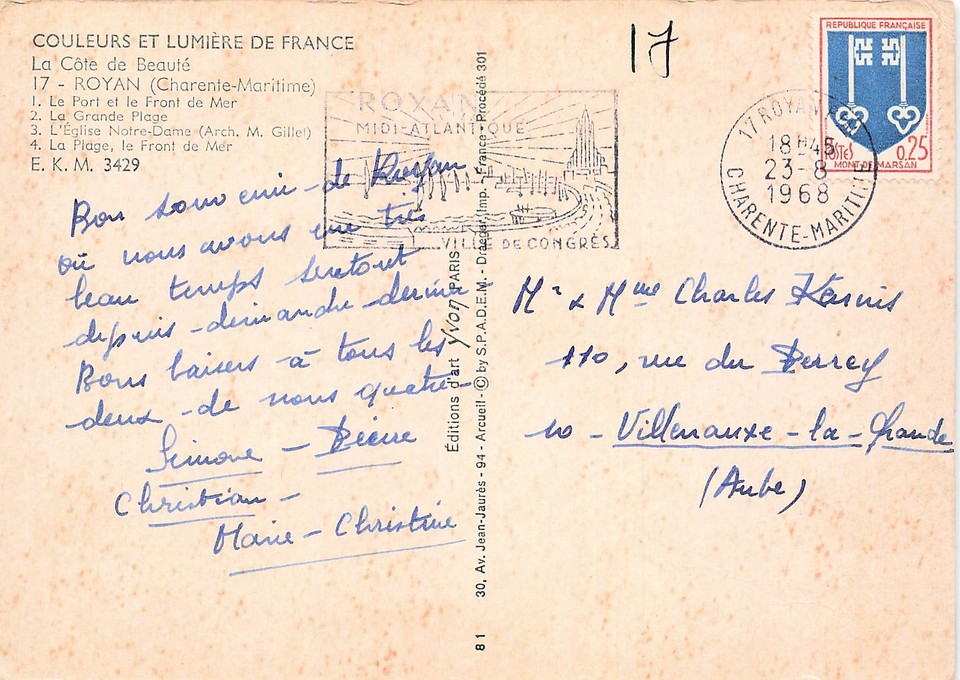 COULEURS ET LUMIÈRE DE FRANCE
La Côte de Beauté
17 - ROYAN (Charente-Maritime)
1. Le Port et le Front de Mer
2. La Grande Plage
3. L'Église Notre-Dame (Arch. M. Gillet)
4. La Plage, le Front de Mer
E. K. M. 3429
17
ROYAN
MIDI-ATLANTIQUE
VILLE DE CONGRÈS
17 ROYAN
18H45
23-8
1968
CHARENTE-MARITIME
REPUBLIQUE FRANÇAISE
POSTES 0,25
MONT-DE-MARSAN
Bon souvenir de Royan
où nous avons eu très
beau temps surtout
depuis dimanche dernier
Bons baisers à tous les
deux de nous quatre
Simone - Pierre
Christian -
Marie-Christine
Éditions d'art Yvon PARIS
30, Av. Jean-Jaurès - 94 - Arcueil - © by S.P.A.D.E.M. - Draeger, Imp. - France - Procédé 301
8 1
Mr & Mme Charles
110, rue du Perrey
10 - Villenauxe-la-Grande
(Aube)